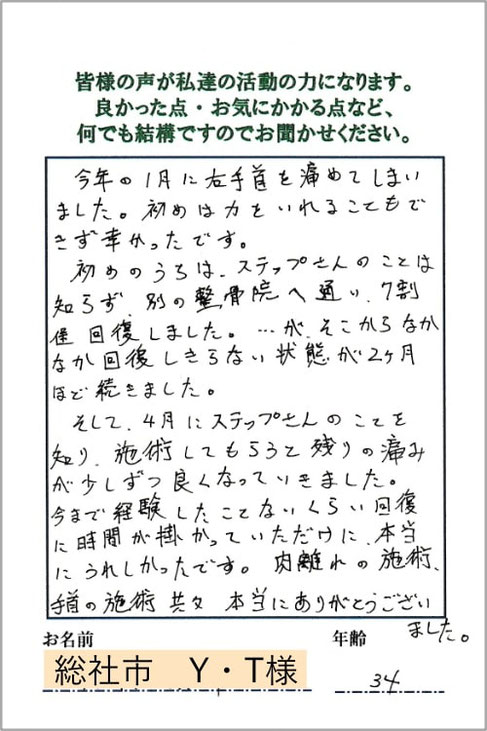 皆様の声が私達の活動の力になります。
良かった点・お気にかかる点など、
何でも結構ですのでお聞かせください。
今年の1月に右手首を痛めてしまい
ました。初めは力をいれることもで
きず辛かったです。
初めのうちは、ステップさんのことは
知らず、別の整骨院へ通い、7割
程回復しました。…が、そこからなか
なか回復しきらない状態が2ヶ月
ほど続きました。
そして、4月にステップさんのことを
知り、施術してもらうと残りの痛み
が少しずつ良くなっていきました。
今まで経験したことないくらい回復
に時間が掛かっていただけに、本当
にうれしかったです。肉離れの施術、
手首の施術共々本当にありがとうござい
ました。
お名前 年齢
総社市 Y・T様 34